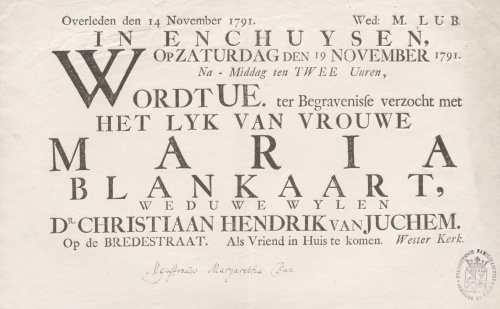 Overleden den 14 November 1791. Wed: M. LUB.
IN ENCHUYSEN,
OP ZATURDAG DEN 19 NOVEMBER 1791.
Na-Middag ten TWEE Uuren,
WORDT UE. ter Begravenisse verzocht met
HET LYK VAN VROUWE
MARIA
BLANKAART,
WEDUWE WYLEN
Dr. CHRISTIAAN HENDRIK VAN JUCHEM.
Op de BREDESTRAAT. Als Vriend in Huis te komen. Wester Kerk.
Margaretha